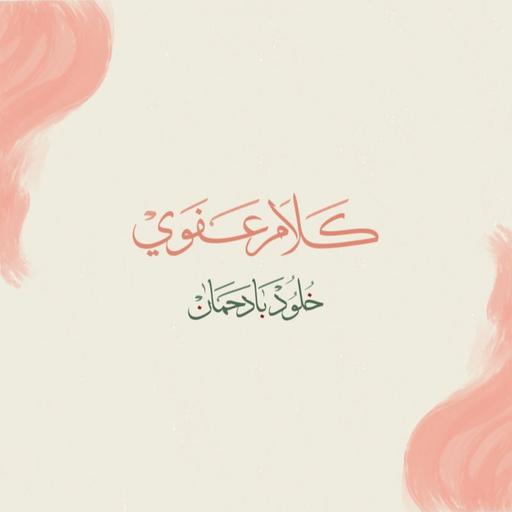 كَلَام عَفَوَي
خُلُودْ بَادَحمَان